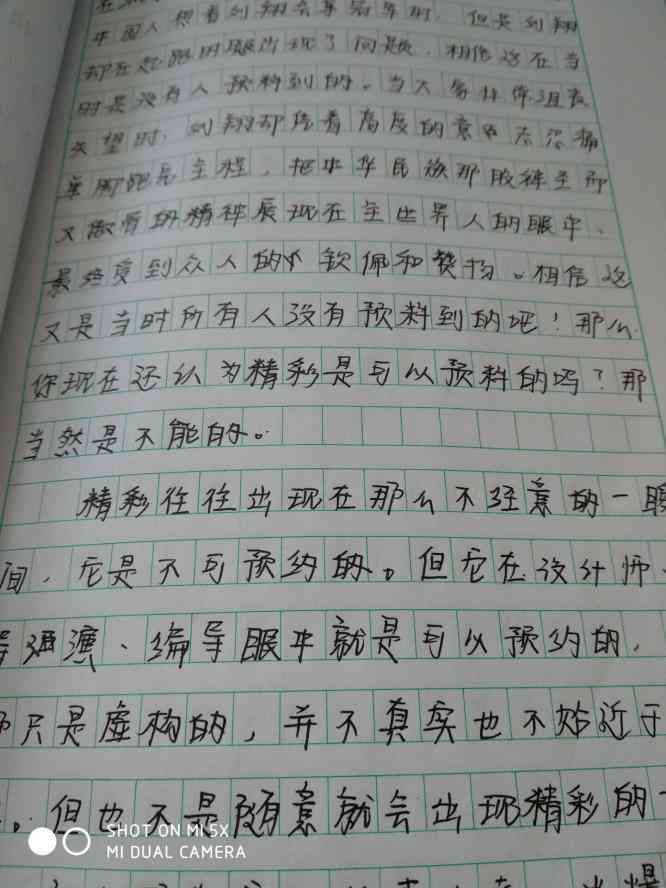 中国人想看刘翔会拿冠军时，但是刘翔
却在起跑时腿出现了问题，相信这在当
时是没有人预料到的。当大家
失望时，刘翔却凭着高度的意
单脚跳完全程，把中华民族那股神圣而
又傲骨的精神展现在全世界人的眼中、
最终受到众人的 钦佩和赞扬。相信这
又是当时所有人没有预料到的吧！那么
你现在还认为精彩是可以预料的吗？那
当然是不能的。
精彩往往出现在那么不经意的一瞬
间，它是不可预约的。但它在设计师、
导演、编导眼中就是可以预约的，
只是虚构的，并不真实也不始近于
。但也不是随意就会出现精彩的
SHOT ON MI 5X
MI DUAL CAMERA